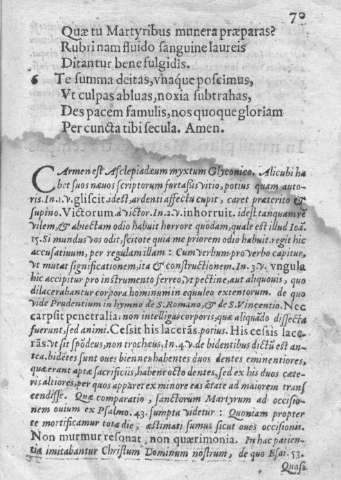 70
Quæ tu Martyribus munera præparas?
Rubri nam fluido sanguine laureis
Ditantur bene fulgidis.
6 Te summa deitas, vnaque poscimus,
Vt culpas abluas, noxia subtrahas,
Des pacem famulis, nos quoque gloriam
Per cuncta tibi secula. Amen.
CArmen est Asclepiadæum myxtum Glyconico. Alicubi ha
bet suos næuos scriptorum furtassis vitio, potius quam auto-
ris. In .1. v. gliscit. id est, ardenti affectu cupit, caret præterito &
supino. Victorum à victor. In .2. v. inhorruit. id est, tanquam re
vilem, & abiectam odio habuit horrore quodam, quale est illud Ioã.
15. Si mundus vos odit, scitote quia me priorem odio habuit. regit hic
accusatiuum, per regulam illam: Cum verbum pro verbo capitur,
vt mutat significationem, ita & constructionem. In .3. v. vngula
hic accipitur pro instrumento ferreo, vt pectine, aut aliquouis, quo
dilacerabantur corpora hominum in equuleo extentorum. de quo
vide Prudentium in hymno de S. Romano, & de S. Vincentio. Nec
carpsit penetralia. non intelligas corporis, quæ aliquãdo dissecta
fuerunt, sed animi. Cessit his lacerãs. porius. His cessis lace-
rãs. vt sit spõdeus, non trocheus, In .4. v. de bidentibus dictũ est an-
tea. bidẽtes sunt oues biennes habentes duos dentes eminentiores,
quæ erant aptæ sacrificiis, habẽt octo dentes, sed ex his duos cæte-
ris altiores, per quos apparet ex minore eas ætate ad maiorem trans
cendisse. Quæ comparatio, sanctorum Martyrum ad occisio-
nem ouium ex Psalmo .43. sumpta videtur: Quoniam propter
te mortificamur tota die, æstimati sumus sicut oues occisionis.
Non murmur resonat, non quærimonia. In hac patien-
tia imitabantur Christum Dominum nostrum, de quo Esai. 53.
Quasi